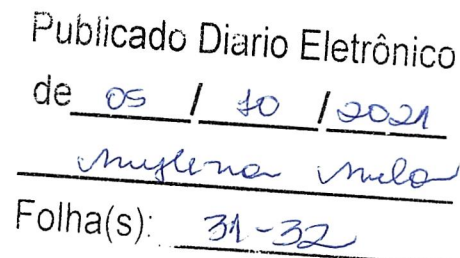 Publicado Diario Eletrônico
de 05 / 10 / 2021
Mylena Melo
Folha(s): 31-32